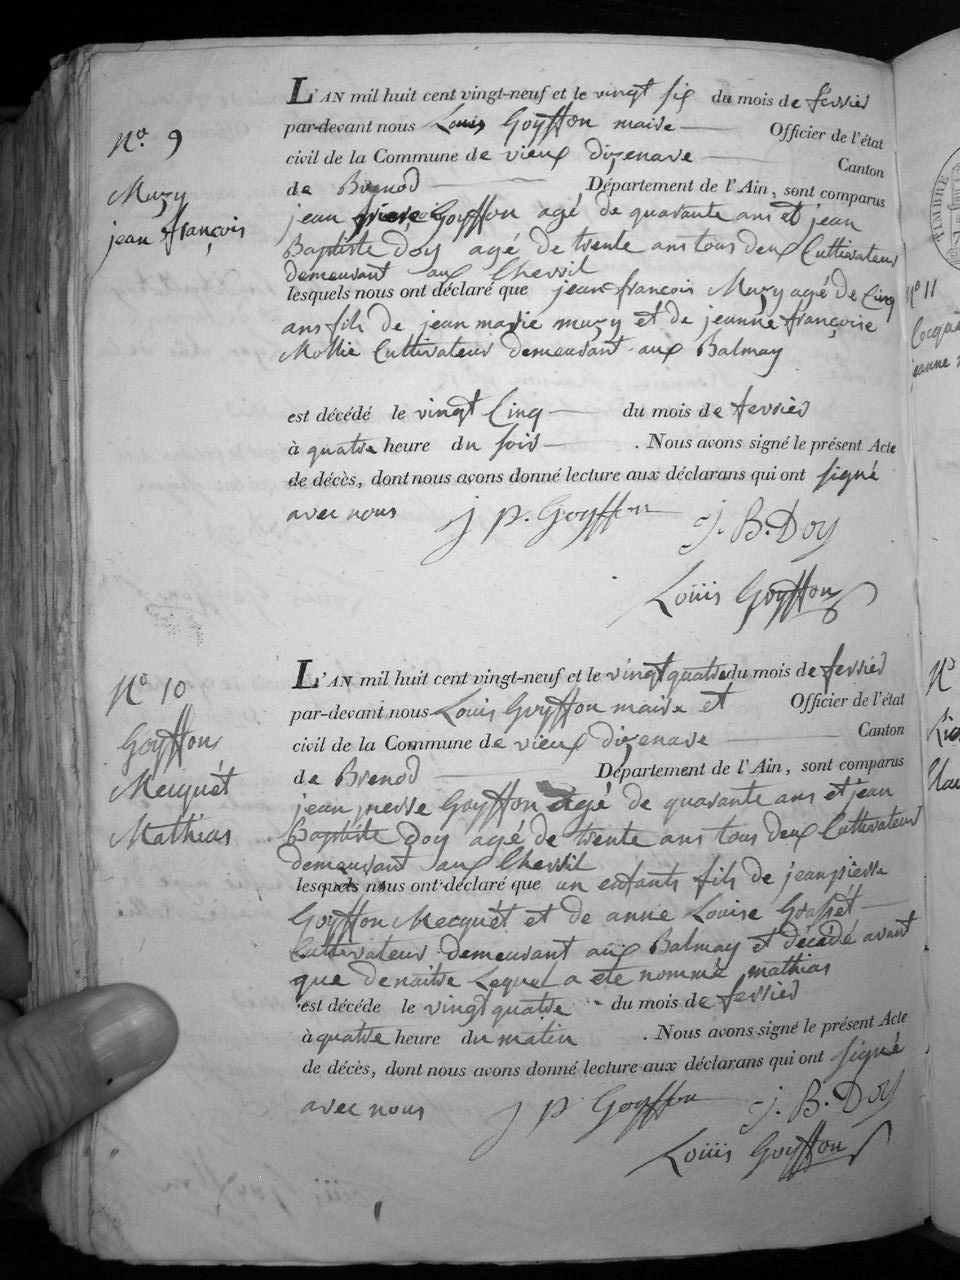 L'AN mil huit cent vingt-neuf et le vingt six du mois de fevrier
par-devant nous Louis Goyffon maire Officier de l'état
civil de la Commune de vieux dizenave Canton
de Brenod Département de l'Ain, sont comparus
jean Goyffon agé de quarante ans et jean
Baptiste Doy agé de trente ans tous deux Cultivateur
demeurant aux Chevril
lesquels nous ont déclaré que jean françois Muzy agé de Cinq
ans fils de jean marie muzy et de jeanne françoise
Mollie Cultivateur demeurant aux Balmay
est décédé le vingt Cinq du mois de fevrier
à quatre heure du soir . Nous avons signé le présent Acte
de décès, dont nous avons donné lecture aux déclarans qui ont signé
avec nous J P. Goyffon J. B. Doy
Louis Goyffon
N.º 9
Muzy
jean françois
L'AN mil huit cent vingt-neuf et le vingt quatre du mois de fevrier
par-devant nous Louis Goyffon maire et Officier de l'état
civil de la Commune de vieux dizenave Canton
de Brenod Département de l'Ain, sont comparus
jean pierre Goyffon agé de quarante ans et jean
Baptiste Doy agé de trente ans tous deux Cultivateur
demeurant aux Chevril
lesquels nous ont déclaré que un enfants fils de jean pierre
Goyffon Mecquêt et de anne Louise Grassét
Cultivateur demeurant aux Balmay et décédé avant
que denaitre Lequel a été nommé mathias
est décéde le vingt quatre du mois de fevrier
à quatre heure du matin . Nous avons signé le présent Acte
de décès, dont nous avons donné lecture aux déclarans qui ont signé
avec nous J P Goyffon J. B. Doy
Louis Goyffon
Nº 10
Goyffon
Mecquêt
Mathias
TIMBRE
Nº 11
jeanne
Nº